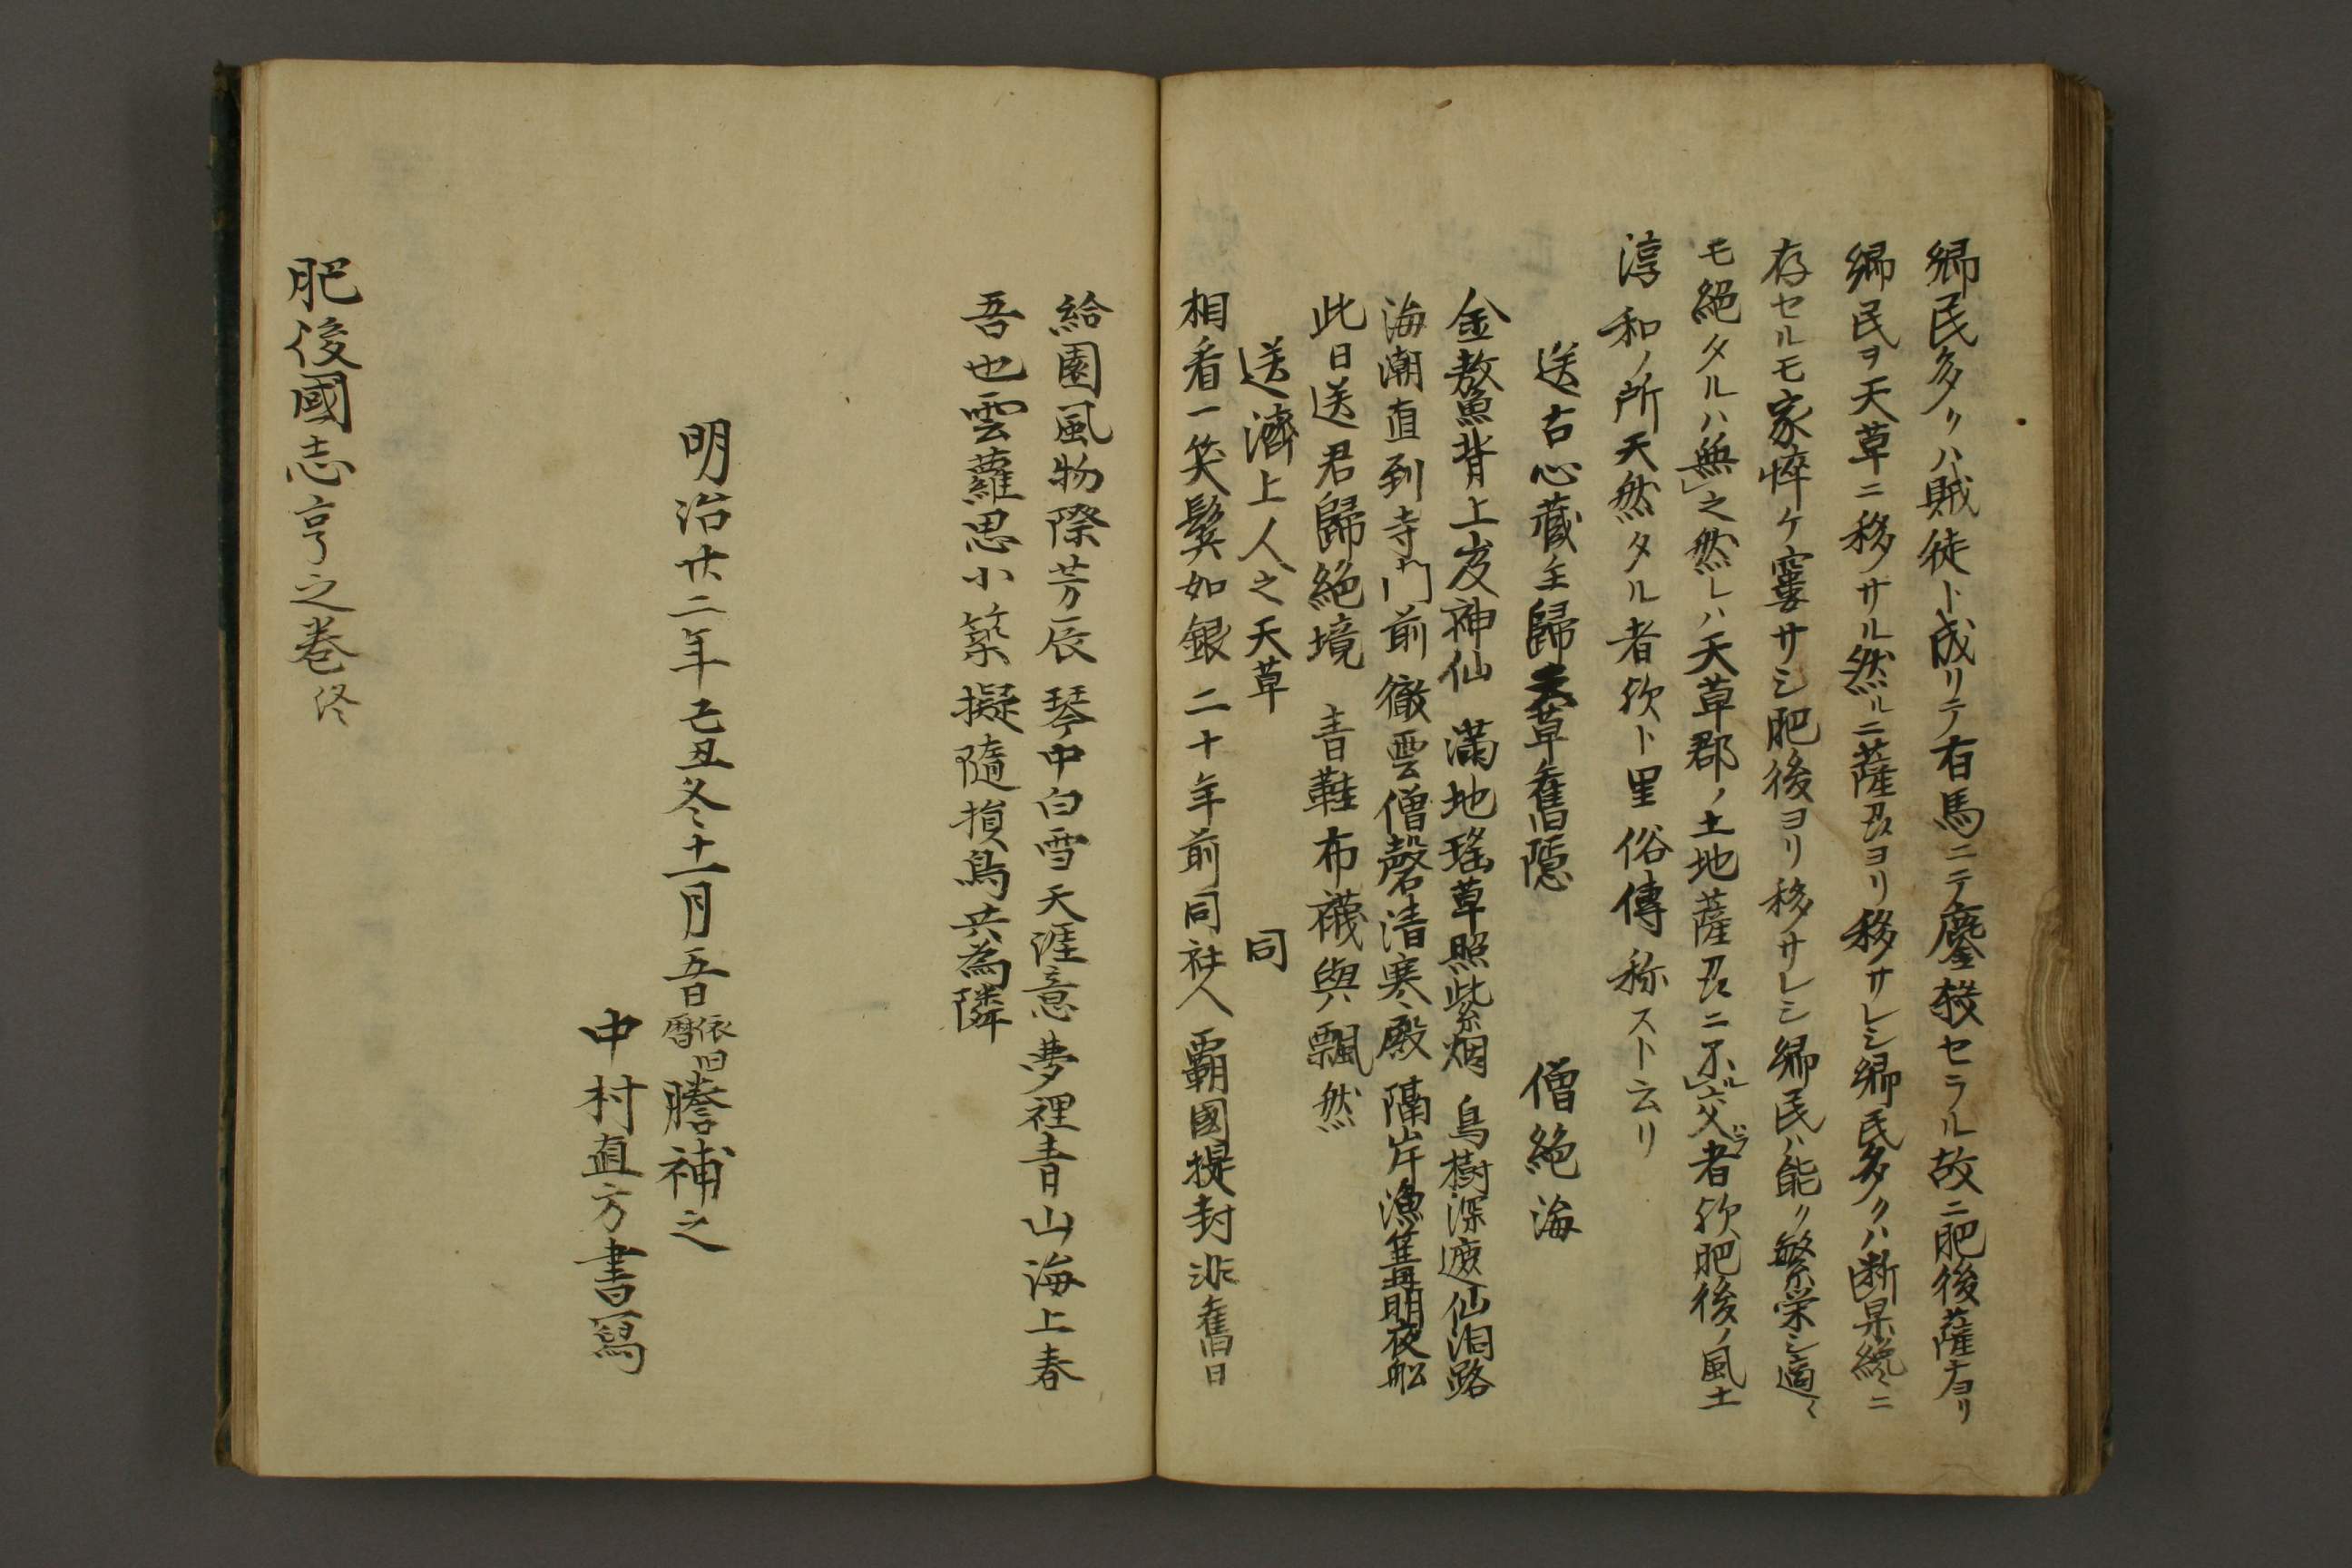 郷民多クハ賊徒ト成リテ有馬ニテ鏖殺セラル故ニ肥後薩ナヨリ
郷民ヲ天草ニ移サル然ルニ薩刕ヨリ移サレシ郷民多クハ断果纔ニ
存セルモ家悴ケ窶サシ肥後ヨリ移サレシ郷民ハ能ク繁栄シ適々
モ絶タルハ無之然レハ天草郡ノ土地薩刕ニ不ル交ハラ者欤肥後ノ風土
淳和ノ所天然タル者欤ト里俗傳称スト云リ
送古心蔵主歸天草舊隠 僧絶海
金鼇背上岌神仙 滿地瑤草照紫烟 鳥樹深遮仙洎路
海潮直到寺門前 徹雲僧磬清寒殿 隔岸漁篝明夜舩
此日送君歸絶境 青鞋布襪與飄然
送濟上人之天草 同
相看一笑鬂如銀 二十年前同社人 覇國提封非舊日
給園風物際芳辰 琴中白雪天涯意 夢裡青山海上春
吾也雲蘿思小築 擬隨損鳥共為隣
明治廿二年己丑冬十一月五日依旧暦謄補之
中村直方書寫
肥後國志亨之巻終